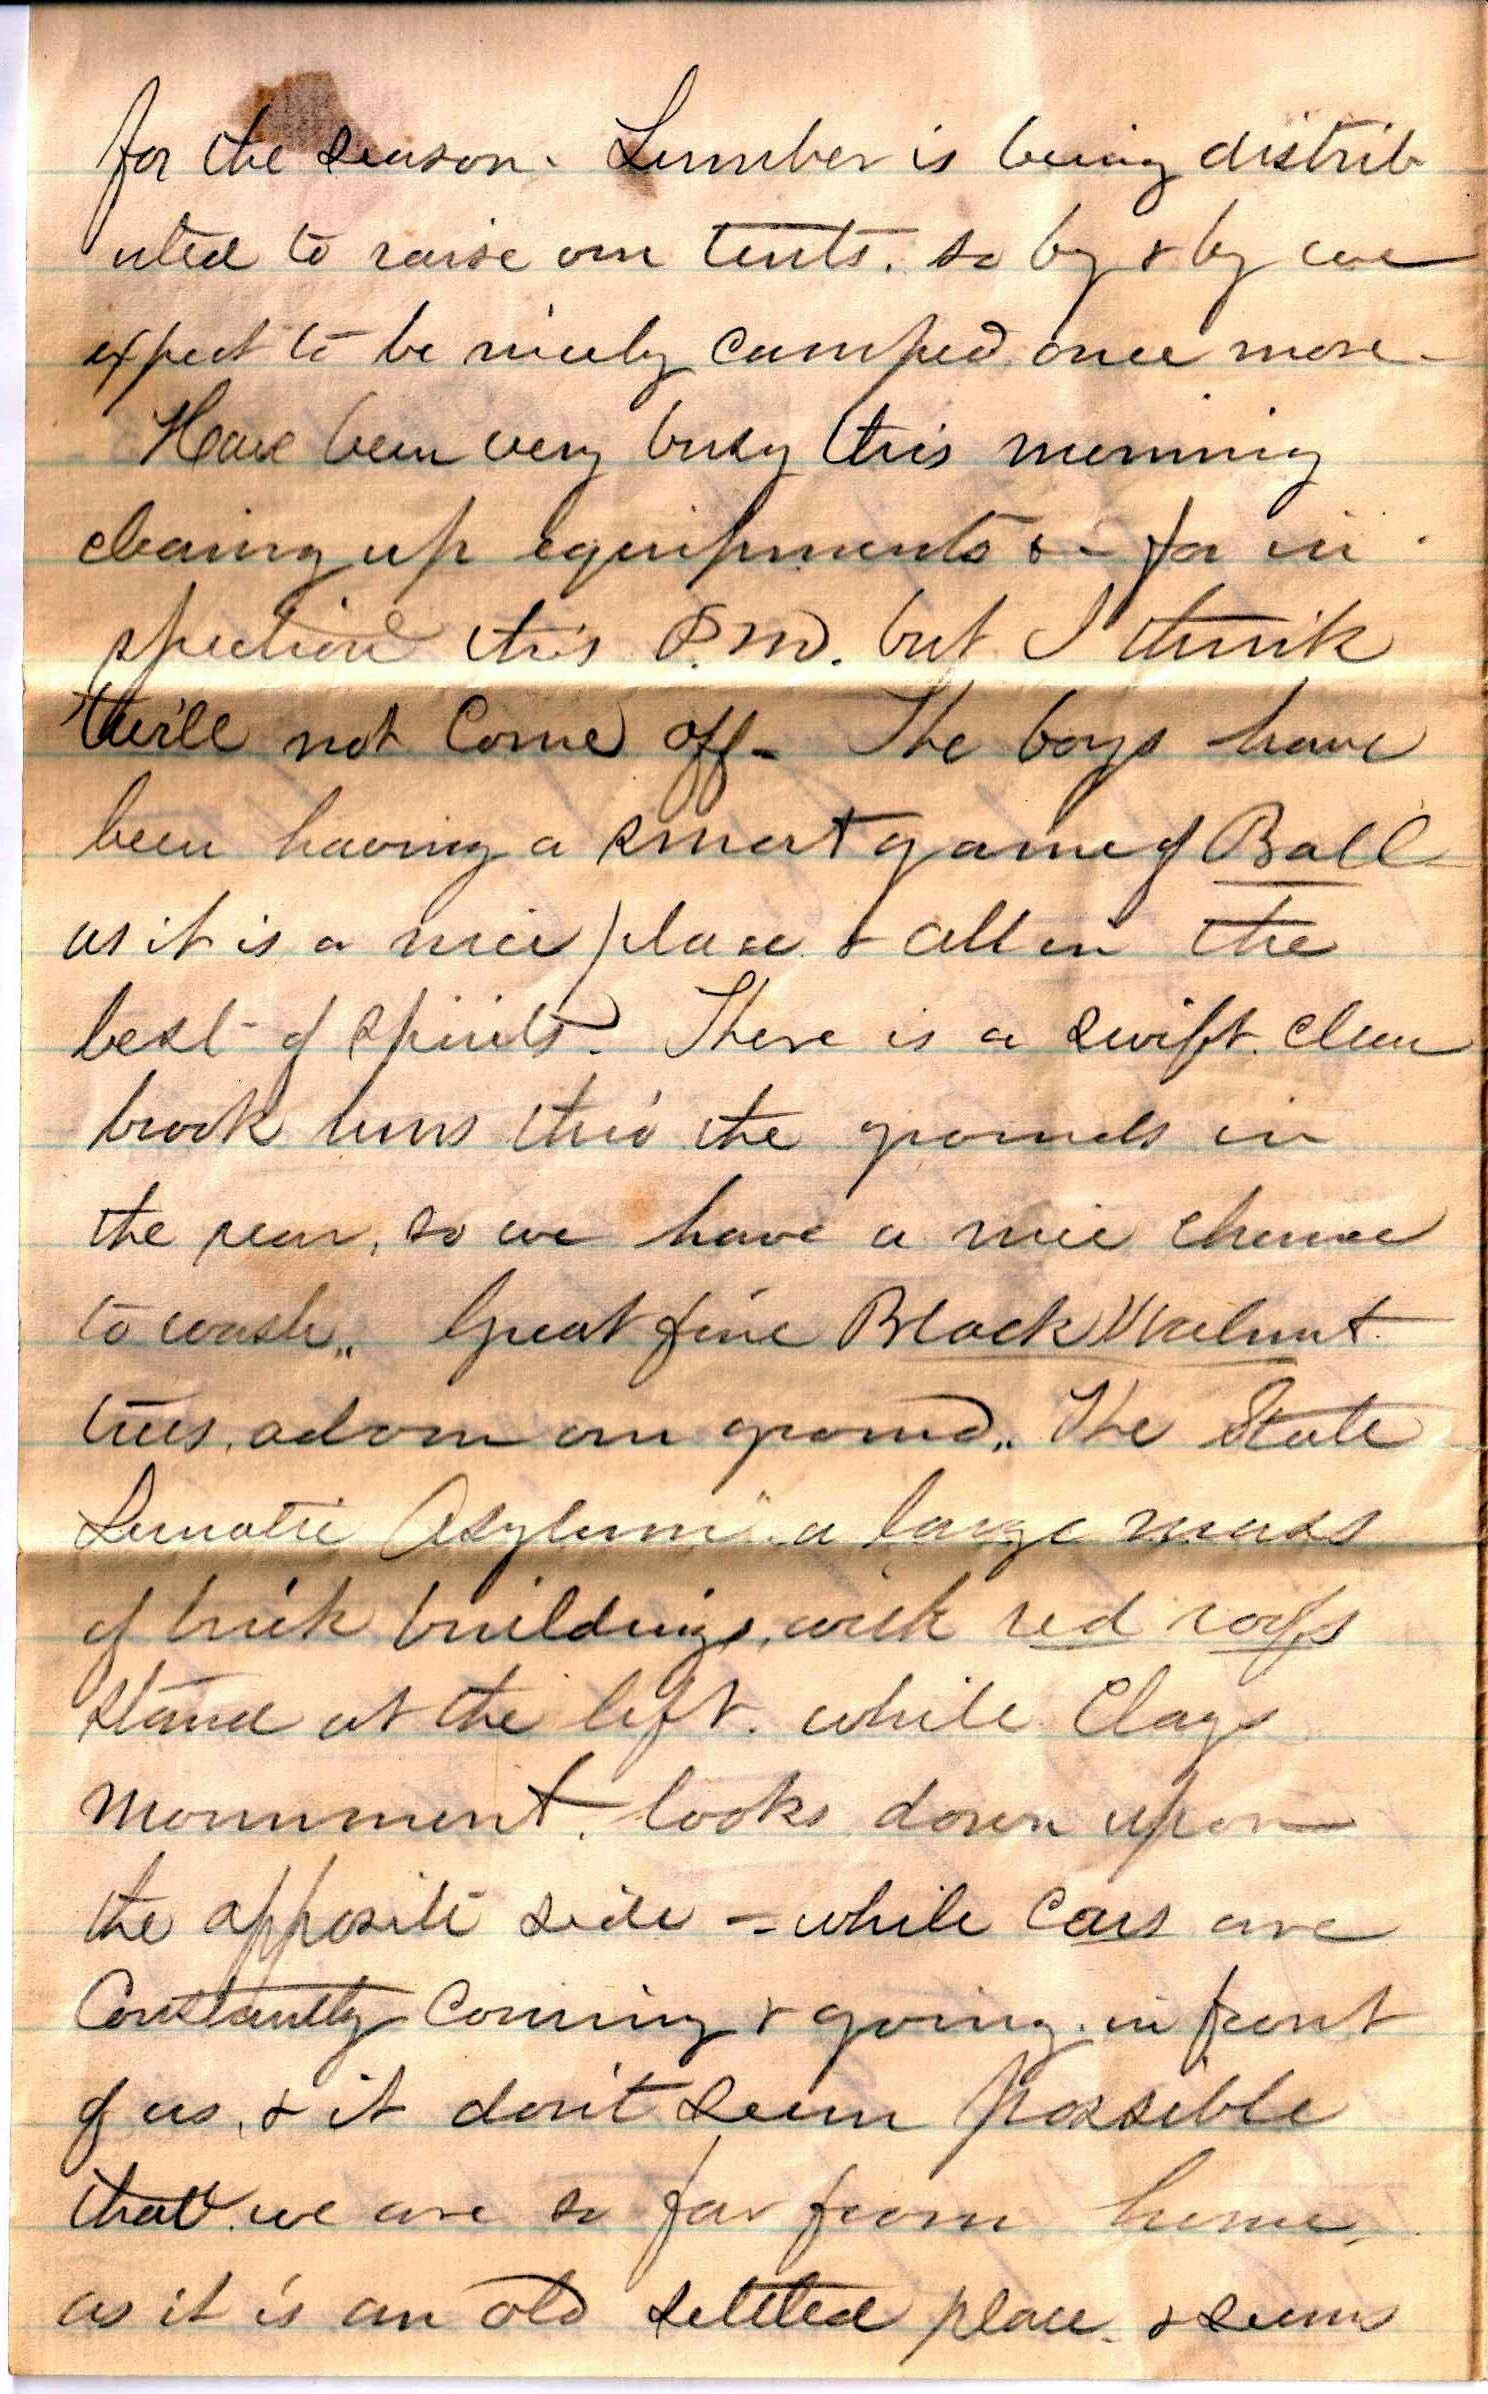 for the season. Lumber is being distrib
uted to raise our tents. so by & by we
expect to be nicely camped once more -
Have been very busy this morning
cleaning up equipments &c for in
spection this P.M. but I think
'twill not come off - The boys have
been having a smart game of Ball
as it is a nice place & all in the
best of spirits. There is a swift. clear
brook runs thro' the grounds in
the rear, so we have a nice chance
to wash,, Great fine Black Walnut
trees, adorn our ground,, The State
Lunatic Asylum" a large mass
of brick buildings, with red roofs
stand at the left. while Clays
monument. looks down upon
the opposite side - while cars are
Constantly coming & going. in front
of us, & it don't seem possible
that we are so far from home,
as it is an old settled place. & seems